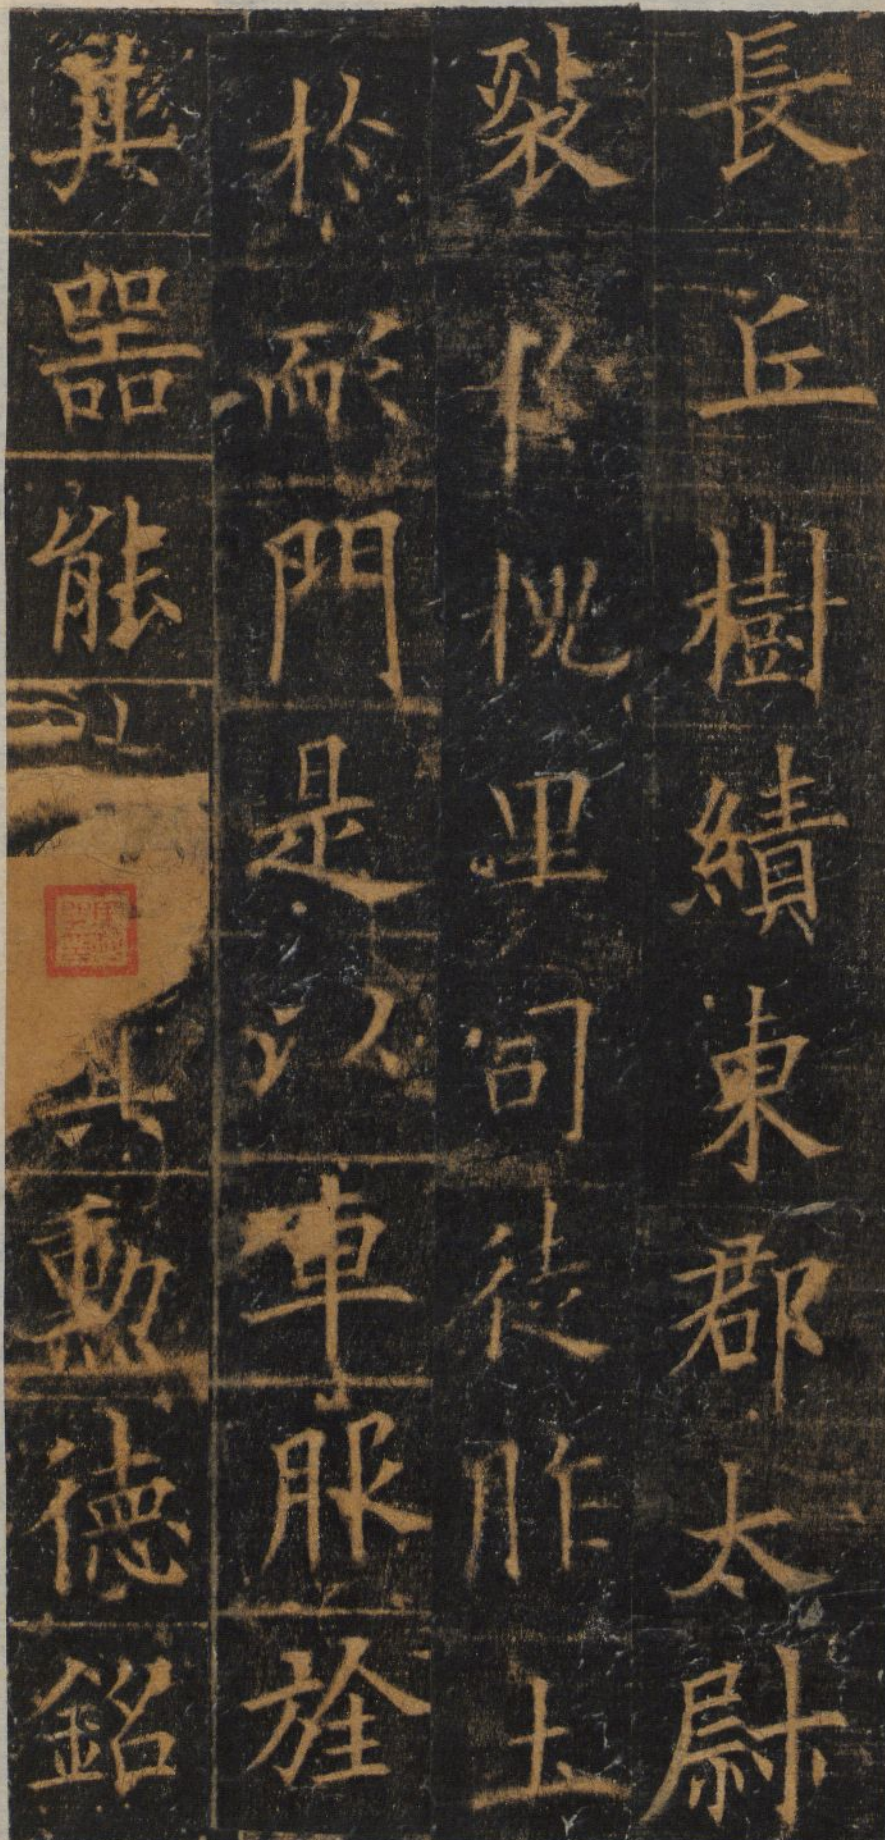 長丘樹績東郡太尉
裂里司徒胙土
於耏門是以車服旌
其器能勳德銘